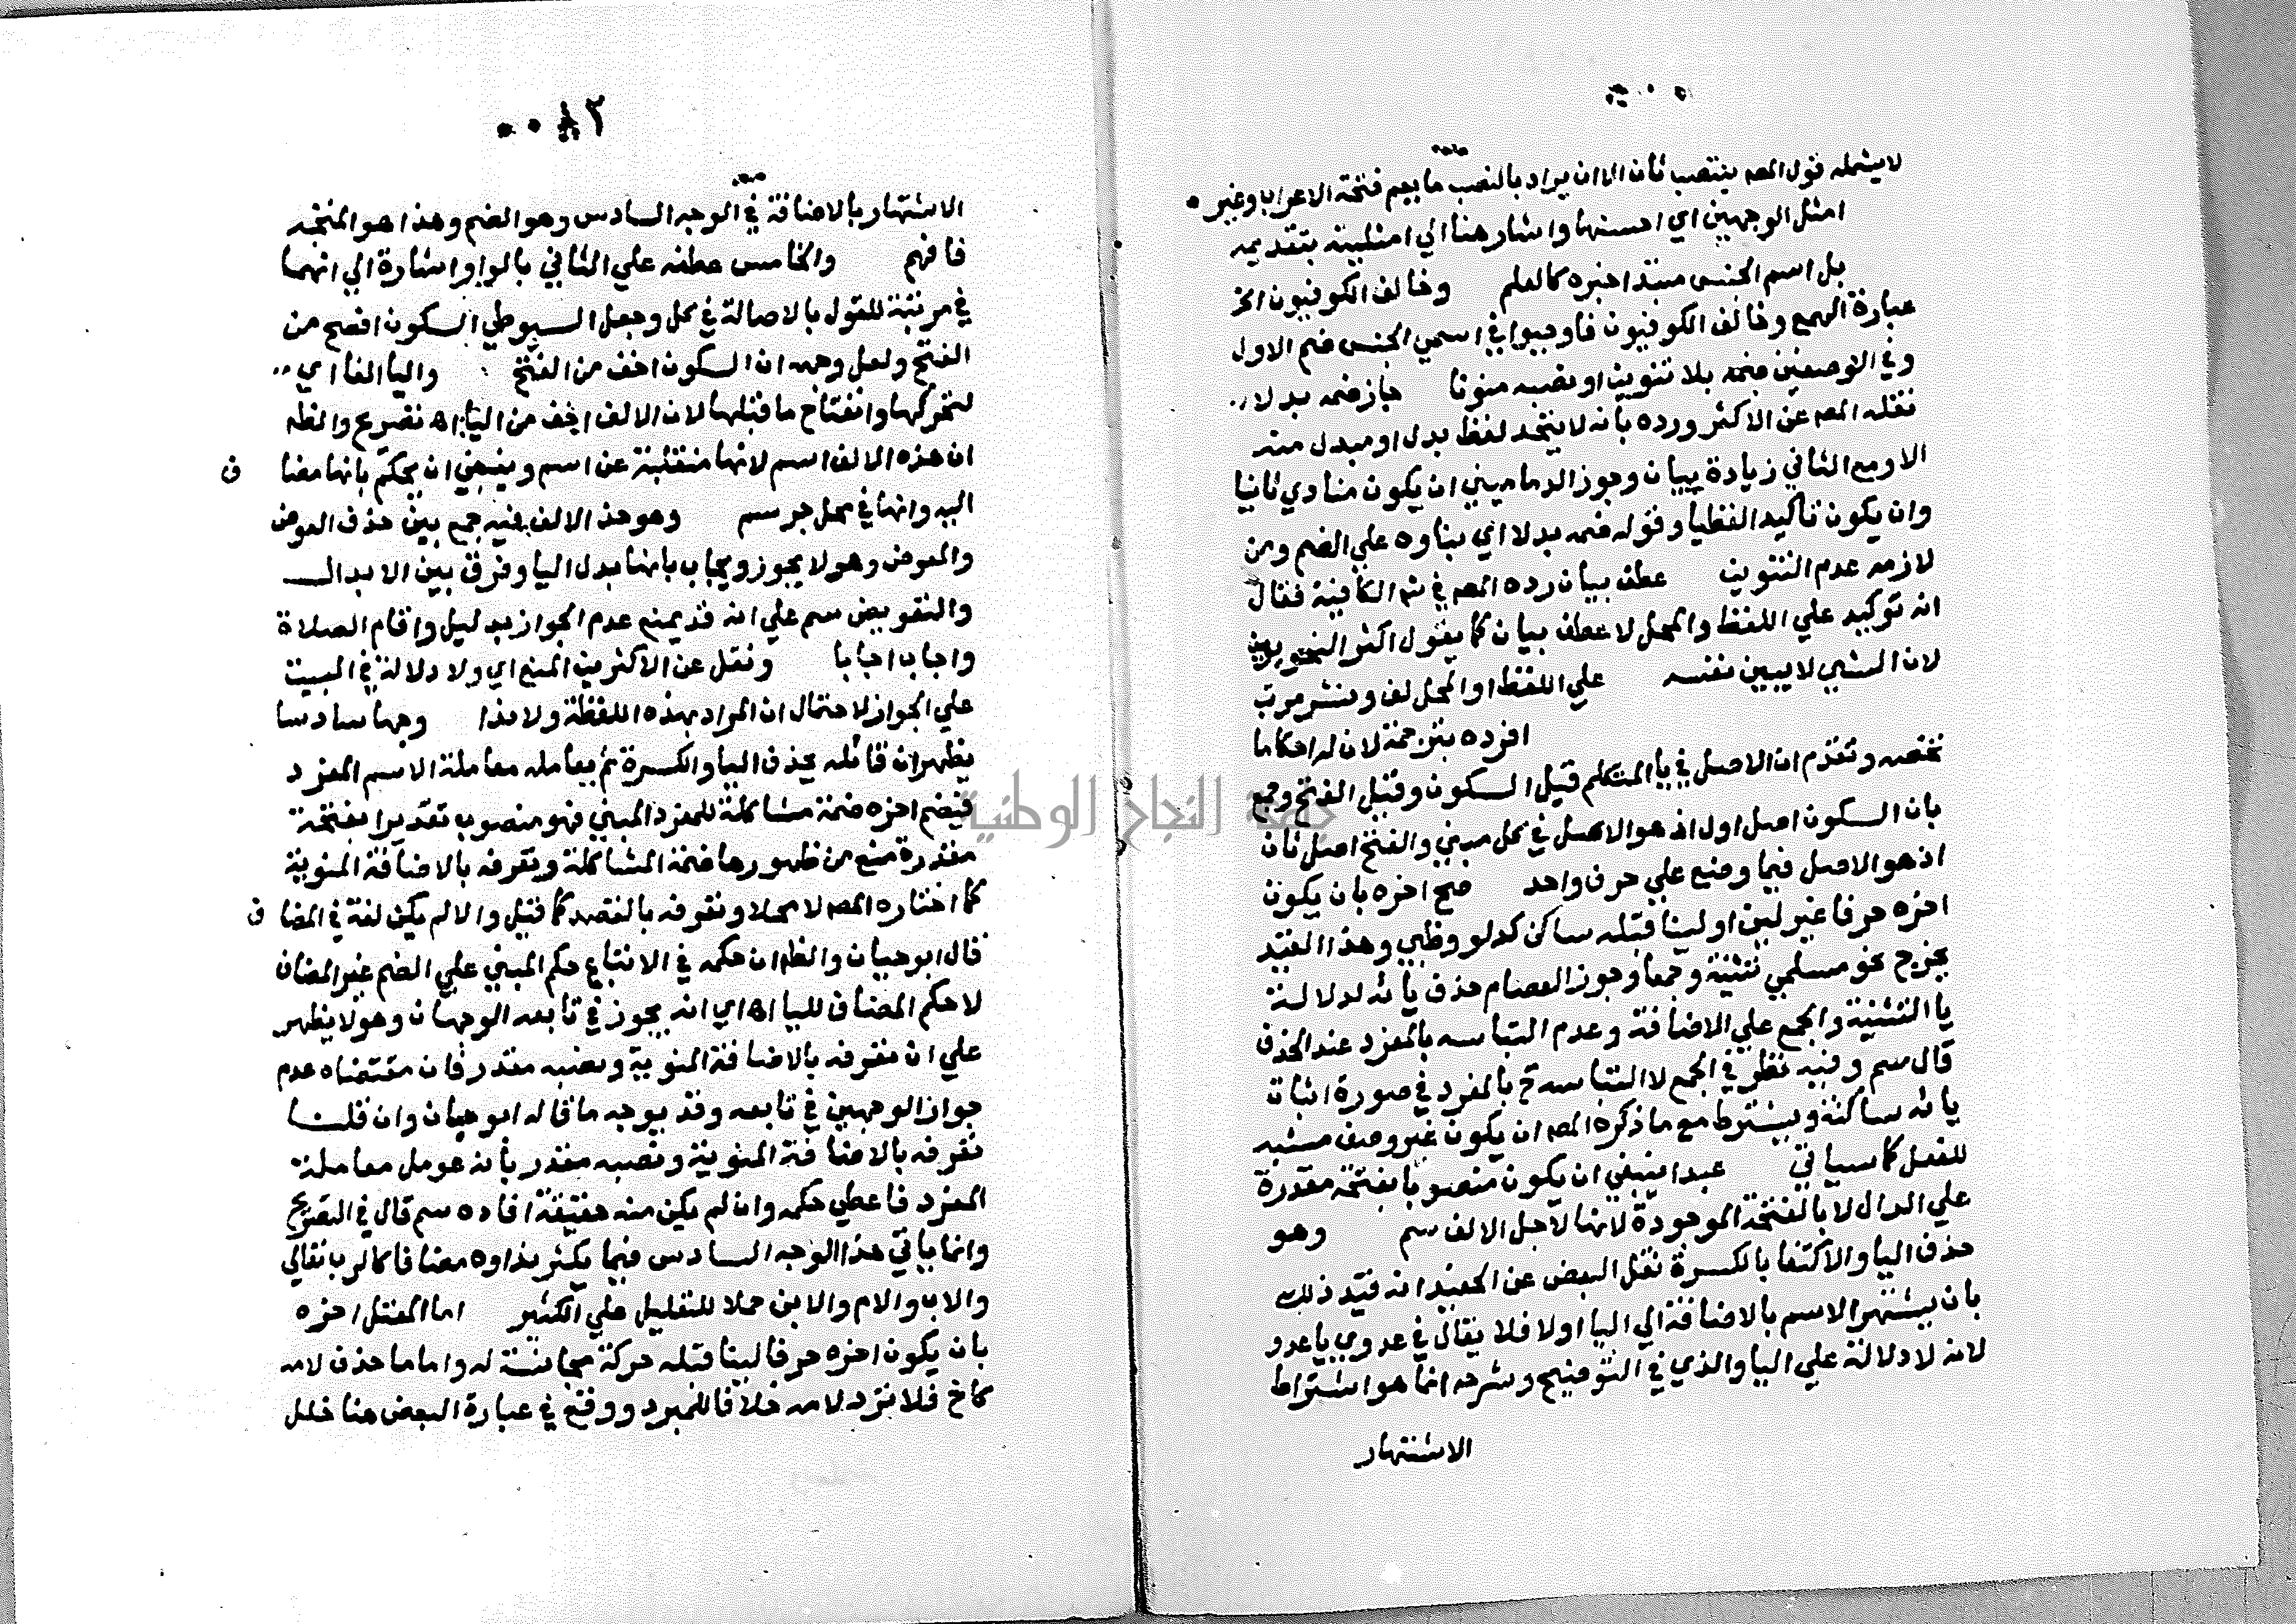 لا يشمله قول المص ينتصب ثان الا ان يراد بالنصب ما يعم فتحة الاعراب وغيره
امثل الوجهين اي احسنها واشار هنا الي امثليته بتقديمه
بل اسم الجنس مبتدا خبره كالعلم وخالف الكوفيون الخ
عبارة الهمع وخالف الكوفيون فاوجبوا في اسمي الجنس ضم الاول
وفي الوصفين ضمه بلا تنوين او نصبه منونا جاز ضمه بدلا
نقله المص عن الاكثر ورده بانه لا يتحد لفظ بدل او مبدل منه
الا ومع الثاني زيادة بيان وجوز الدماميني ان يكون منادي ثانيا
وان يكون تاكيدا لفظيا وقوله ضمه بدلا اي بناوه علي الضم ومن
لازمه عدم التنوين عطف بيان رده المص في شم الكافية فقال
انه توكيد علي اللفظ والمحل لا عطف بيان كما يقول اكثر النحويين
لان الشي لا يبين نفسه علي اللفظ او المحل لف ونشر مرتب
افرده بترجمة لان له احكاما
تخصه وتقدم ان الاصل في يا المتكلم قيل السكون وقيل الفتح وجمع
بان السكون اصل اول اذ هو الاصل في كل مبني والفتح اصل ثان
اذ هو الاصل فيما وضع علي حرف واحد صح اخره بان يكون
اخره حرفا غير لين او لينا قبله ساكن كدلو وظبي وهذا القيد
يخرج نحو مسلمي تثنية وجمعا وجوز العصام حذف يائه لدلالة
يا التثنية والجمع علي الاضافة وعدم التباسه بالمفرد عند الحذف
قال سم وفيه نظر في الجمع لالتباسه ح بالمفرد في صورة اثبات
يائه ساكنة ويشترط مع ما ذكره المص ان يكون غير وصف مشبه
للفعل كما سياتي عبدا ينبغي ان يكون منصوبا بفتحة مقدرة
علي الدال لا بالفتحة الموجودة لانها لاجل الالف سم وهو
حذف اليا والاكتفا بالكسرة نقل البعض عن الحفيد انه قيد ذلك
بان يشتهر الاسم بالاضافة الي اليا اولا فلا يقال في عدوي يا عدو
لانه لا دلالة علي اليا والذي في التوضيح وشرحه انما هو اشتراط
الاشتهار
الاشتهار بالاضافة في الوجه السادس وهو الضم وهذا هو المتجه
فافهم والخامس عطفه علي الثاني بالواو اشارة الي انهما
في مرتبة للقول بالاصالة في كل وجعل السيوطي السكون افصح من
الفتح ولعل وجهه ان السكون اخف من الفتح واليا الفا اي
لتحركها وانفتاح ما قبلها لان الالف اخف من اليا اه تصريح والظه
ان هذه الالف اسم لانها منقلبة عن اسم وينبغي ان يحكم بانها مضاف
اليه وانها في محل جر سم وهو حذ الالف فيه جمع بين حذف العوض
والمعوض وهو لا يجوز ويجاب بانها بدل اليا وفرق بين الابدال
والتعويض سم علي انه قد يمنع عدم الجواز بدليل واقام الصلاة
واجاب اجابا ونقل عن الاكثرين المنع اي ولا دلالة في البيت
علي الجواز لاحتمال ان المراد بهذه اللفظة ولا بذا وجها سادسا
يظهر ان قائله يحذف اليا والكسرة ثم يعامله معاملة الاسم المفرد
فيضم اخره ضمة مشاكلة للمفرد المبني فهو منصوب تقديرا بفتحة
مقدرة منع من ظهورها ضمة المشاكلة وتعرفه بالاضافة المنوية
كما اختاره المص لا محلا وتعرفه بالقصد كما قيل والا لم يكن لغة في المضاف
قال ابو حيان والظه ان حكمه في الاتباع حكم المبني علي الضم غير المضاف
لا حكم المضاف لليا اه اي انه يجوز في تابعه الوجهان وهو لا يظهر
علي ان تعرفه بالاضافة المنوية ونصبه مقدر فان مقتضاه عدم
جواز الوجهين في تابعه وقد يوجه ما قاله ابو حيان وان قلنا
تعرفه بالاضافة المنوية ونصبه مقدر بانه عومل معاملة
المفرد فاعطي حكمه وان لم يكن منه حقيقة افاده سم قال في التصريح
وانما ياتي هذا الوجه السادس فيما يكثر نداوه مضافا كالرب تعالي
والاب والام والابن حملا للتقليل علي الكثير اما المعتل اخره
بان يكون اخره حرفا لينا قبله حركة مجانسة له واما ما حذف لامه
كاخ فلا ترد لامه خلافا للمبرد ووقع في عبارة البعض هنا خلل
جامعة النجاح الوطنية